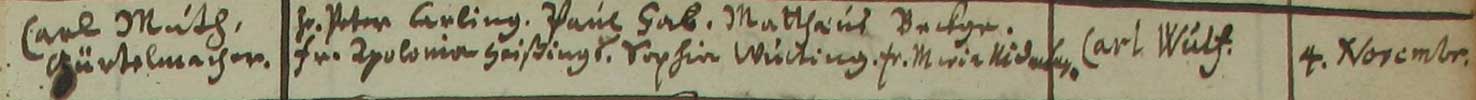 Carl Muth,
Gürtelmacher.
hr. Peter Carling. Paul Gab. Matthäus Becker.
fr. Apolonia Sophia Wulting. fr. Maria
Carl Wulf.
4. Novembr.